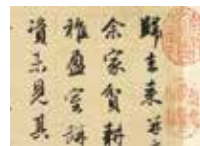 歸去来并
余家貧耕
稚盈室缾
資未見其